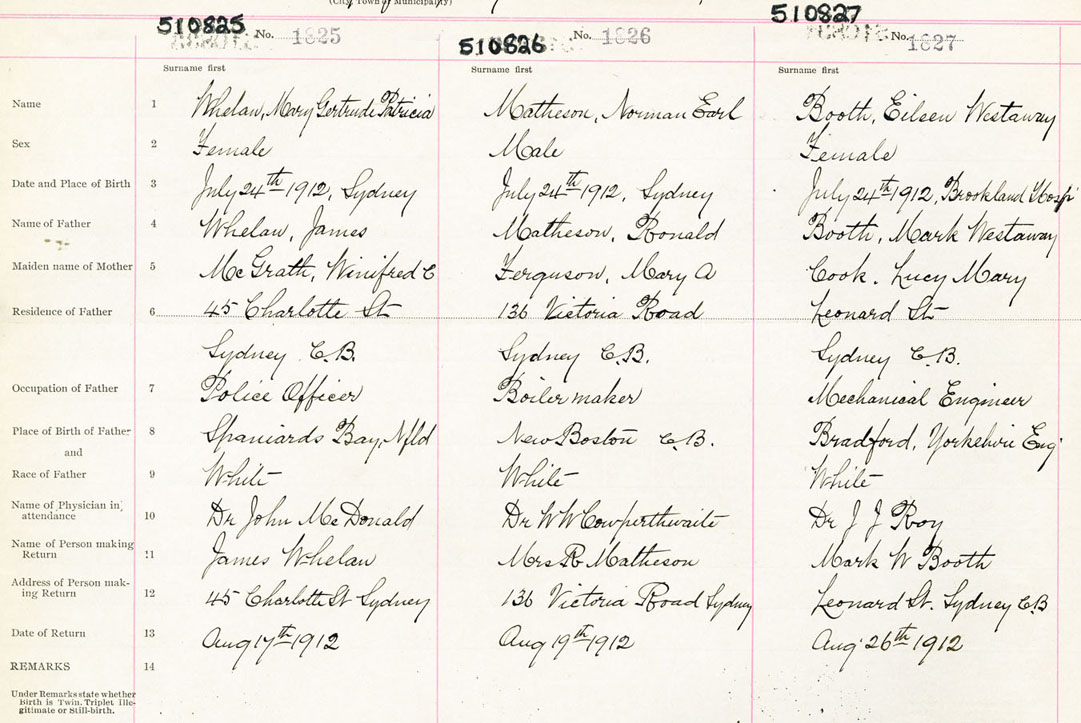 (City, Town or Municipality)
510825 No. 1825
510826 No. 1826
510827 No. 1827
Surname first Surname first Surname first
Name 1 Whelan, Mary Gertrude Patricia Matheson, Norman Earl Booth, Eileen Westaway
Sex 2 Female Male Female
Date and Place of Birth 3 July 24th 1912, Sydney July 24th 1912, Sydney July 24th 1912, Brookland Hosp
Name of Father 4 Whelan, James Matheson, Ronald Booth, Mark Westaway
Maiden name of Mother 5 McGrath, Winifred C Ferguson, Mary A Cook. Lucy Mary
Residence of Father 6 45 Charlotte St 136 Victoria Road Leonard St
Sydney C.B. Sydney C.B. Sydney C.B.
Occupation of Father 7 Police Officer Boilermaker Mechanical Engineer
Place of Birth of Father 8 Spaniards Bay, Nfld New Boston C.B. Bradford, Yorkshire Eng
and
Race of Father 9 White White White
Name of Physician in 10 Dr John McDonald Dr W W Cowperthwaite Dr J J Roy
attendance
Name of Person making 11 James Whelan Mrs R Matheson Mark W Booth
Return
Address of Person mak- 12 45 Charlotte St Sydney 136 Victoria Road Sydney Leonard St. Sydney C.B
ing Return
Date of Return 13 Aug 17th 1912 Aug 19th 1912 Aug 26th 1912
REMARKS 14
Under Remarks state whether
Birth is Twin. Triplet Ille-
gitimate or Still-birth.